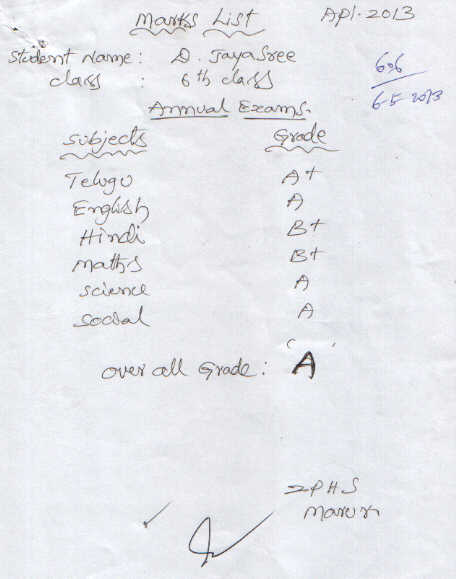 Marks List Apl. 2013
Student Name : D. Jayasree
class : 6th class
6-5-2013
Annual Exams.
Subjects Grade
Telugu A+
English A
Hindi B+
maths B+
science A
social A
over all Grade : A
ZPHS